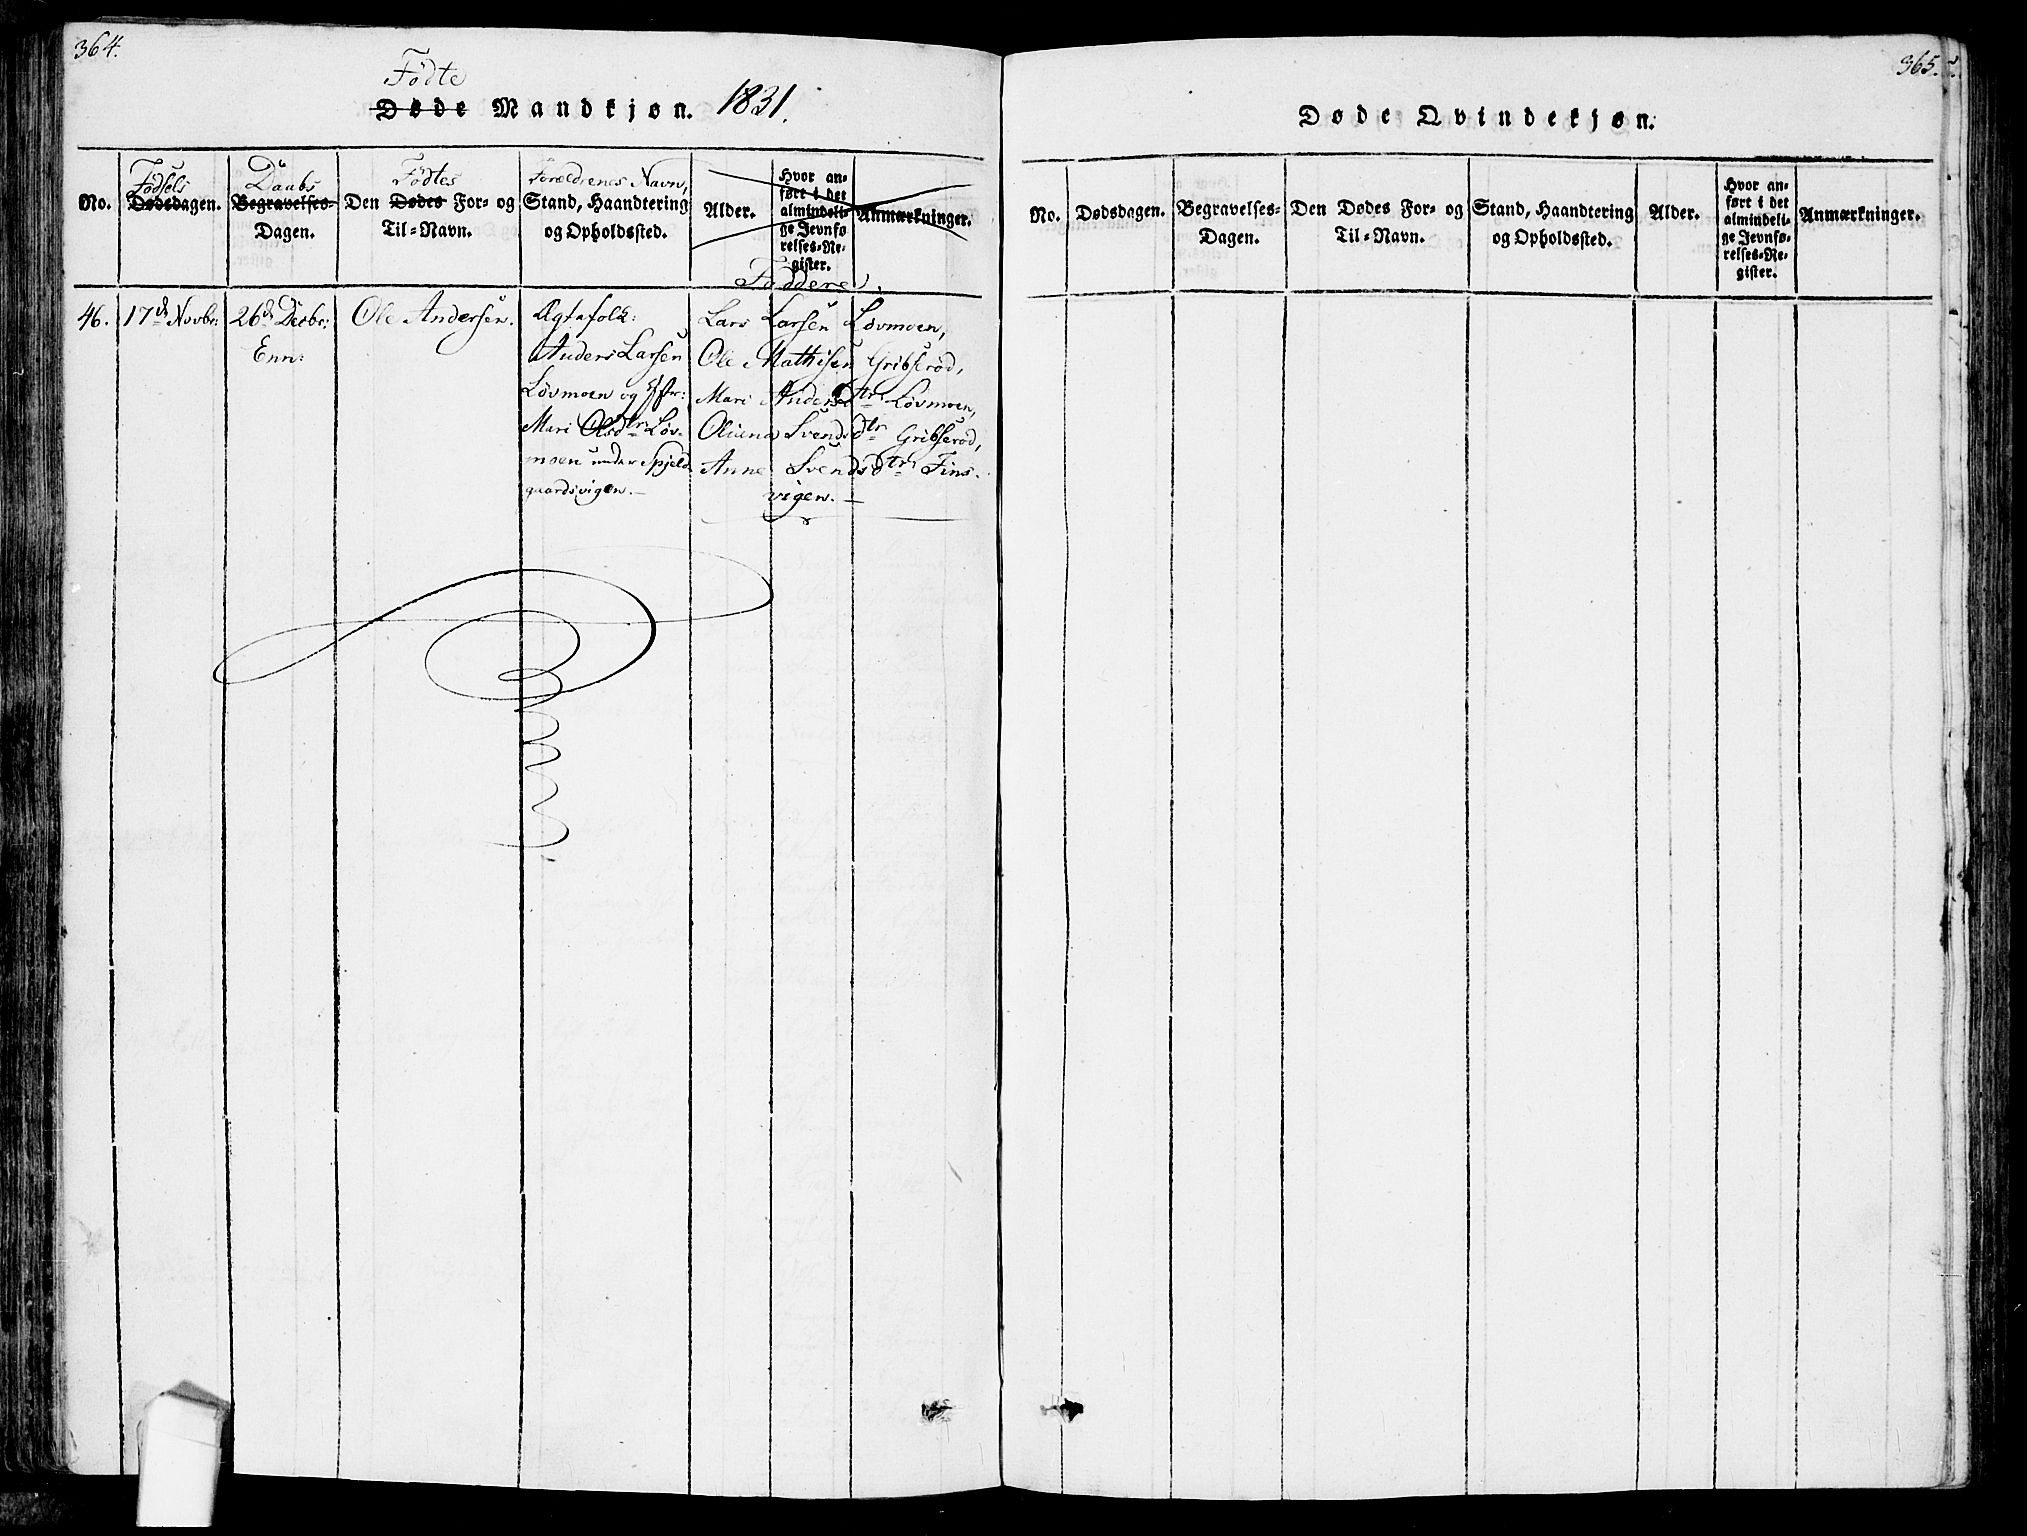 364.
Fødte
Døde Mandkjøn. 1831.
No.
Fødsels
Dødsdagen.
Daabs
Begravelses-
Dagen.
Fødtes
Den Dødes For- og
Til-Navn.
Forældrenes Navn,
Stand, Haandtering
og Opholdssted.
Alder.
Hvor an-
ført i det
almindeli-
ge Jevnfø-
relses-Re-
gister.
Anmærkninger.
Faddere.
46.
17de Novbr:
26de Decbr:
Enn:
Ole Andersen.
Ægtefolk:
Anders Larsen
Løvmoen og
Mari Olsdtr Løv-
moen under Spjeld-
gaardsvigen.
Lars Larsen Løvmoen,
Ole Mathisen Gribserød,
Mari Andersdtr Løvmoen,
Oliana Svendsdtr Gribserød,
Anne Svendsdtr Fins-
vigen.
365.
Døde Qvindekjøn.
No.
Dødsdagen.
Begravelses-
Dagen.
Den Dødes For- og
Til-Navn.
Stand, Haandtering
og Opholdssted.
Alder.
Hvor an-
ført i det
almindeli-
ge Jevnfø-
relses-Re-
gister.
Anmærkninger.